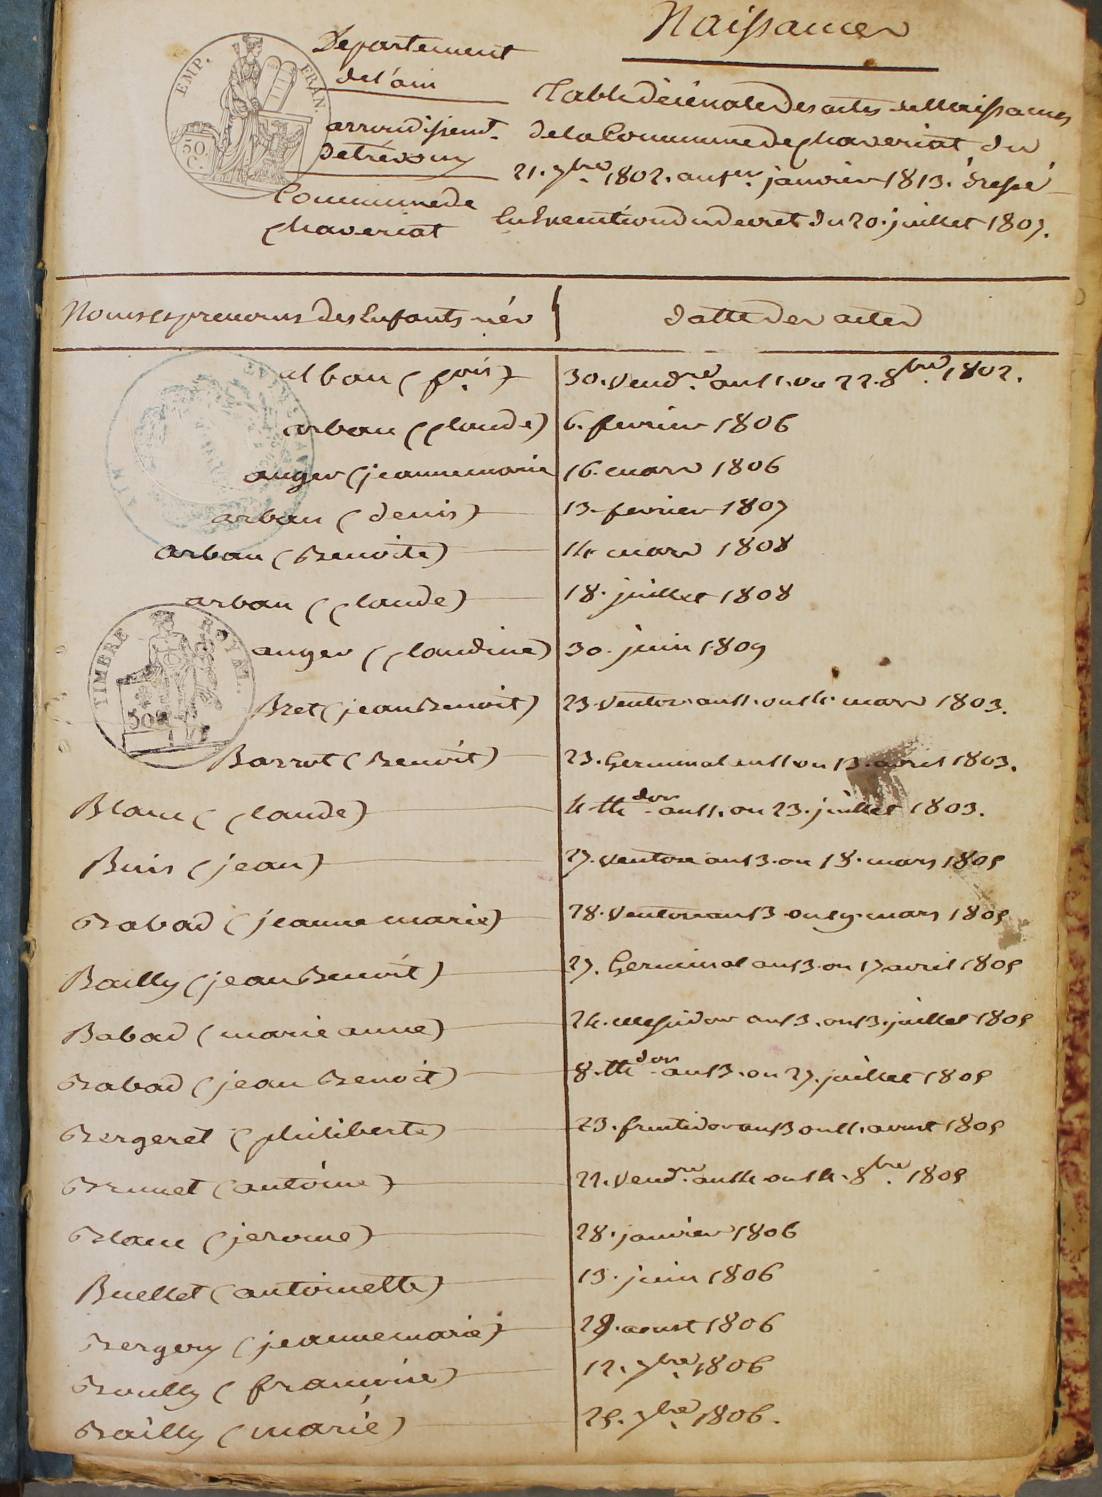 Naissances
Département
de l'ain
arrondissent.
de trévoux
Commune de
chaveriat
Table décénale des actes de Naissances
de la Commune de chaveriat du
21. 7bre. 1802. au 1er. janvier 1813. dressé
En Exécution du decret du 20. juillet 1807.
EMP. FRAN.
50 C.
Noms et prenoms des Enfants nés
datte des actes
AIN
alban (fçois) 30. Vendre. an 11. ou 22. 8bre. 1802.
arban (Claude) 6. fevrier 1806
auger (jeanne marie 16. mars 1806
arban (denis) 13. fevrier 1807
arban (Benoite) 14. mars 1808
arban (Claude) 18. juillet 1808
auger (Claudine) 30. juin 1809
TIMBRE ROYAL.
50
Bret (jean Benoit) 23 Ventose an 11. ou 14. mars 1803.
Barrot (Benoit) 23. Germinal an 11 ou 13. avril 1803.
Blanc (Claude) 4 thdor. an 11. ou 23. juillet 1803.
Buis (jean) 27. Ventose an 13. ou 18. mars 1805
Babad (jeanne marie) 28. Ventose an 13. ou 19. mars 1805
Bailly (jean Benoit) 27. Germinal an 13. ou 17 avril 1805
Babad (marie anne) 24. Messidor an 13. ou 13. juillet 1805
Babad (jean Benoit) 8. thdor. an 13. ou 27. juillet 1805
Bergeret (philiberte) 23. fructidor an 13 ou 11. aout 1805
Brunet (antoine) 22. Vendre. an 14 ou 14. 8bre. 1805
Blanc (jerome) 28. janvier 1806
Buellet (antoinette) 13. juin 1806
Bergery (jeanne marie) 29. aoust 1806
Boully (francoise) 12. 7bre. 1806
Bailly (marie) 25. 7bre. 1806.